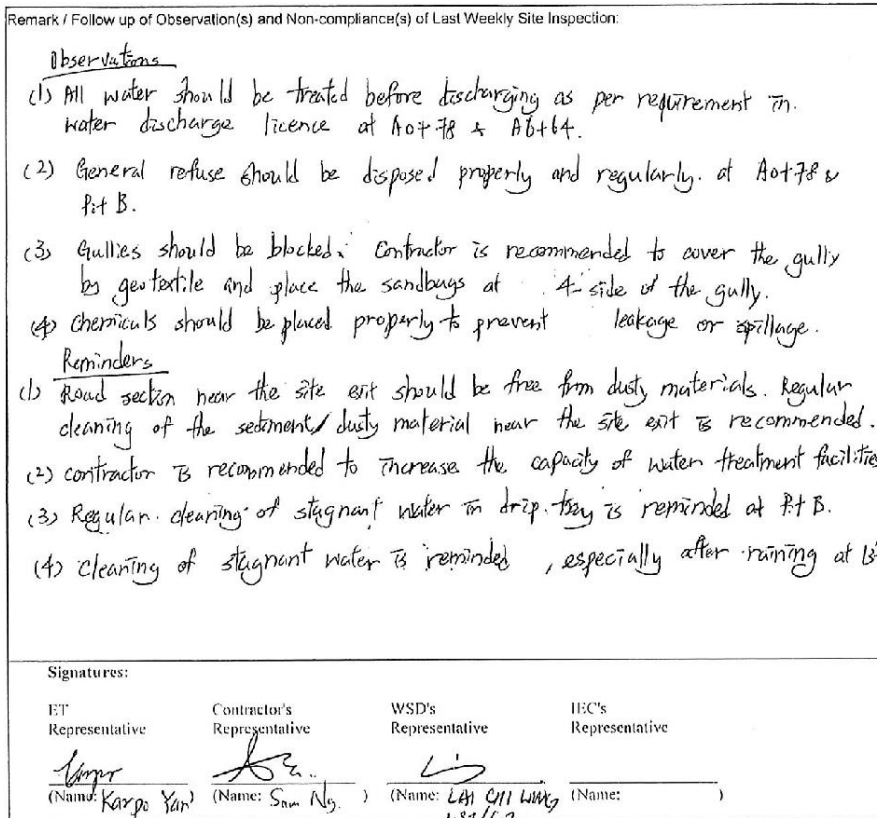 Remark / Follow up of Observation(s) and Non-compliance(s) of Last Weekly Site Inspection:
Observations
(1) All water should be treated before discharging as per requirement in
water discharge licence at A0+78 & A6+64.
(2) General refuse should be disposed properly and regularly. at A0+78 &
Pit B.
(3) Gullies should be blocked. Contractor is recommended to cover the gully
by geotextile and place the sandbags at 4-side of the gully.
(4) Chemicals should be placed properly to prevent leakage or spillage.
Reminders
(1) Road section near the site exit should be free from dusty materials. Regular
cleaning of the sediment/dusty material near the site exit is recommended.
(2) Contractor is recommended to increase the capacity of water treatment facilities
(3) Regular cleaning of stagnant water in drip tray is reminded at Pit B.
(4) Cleaning of stagnant water is reminded, especially after raining at
Signatures:
ET Contractor's WSD's IEC's
Representative Representative Representative Representative
(Name: Karpo Yan) (Name: Sam Ng. ) (Name: LAI (Name: )